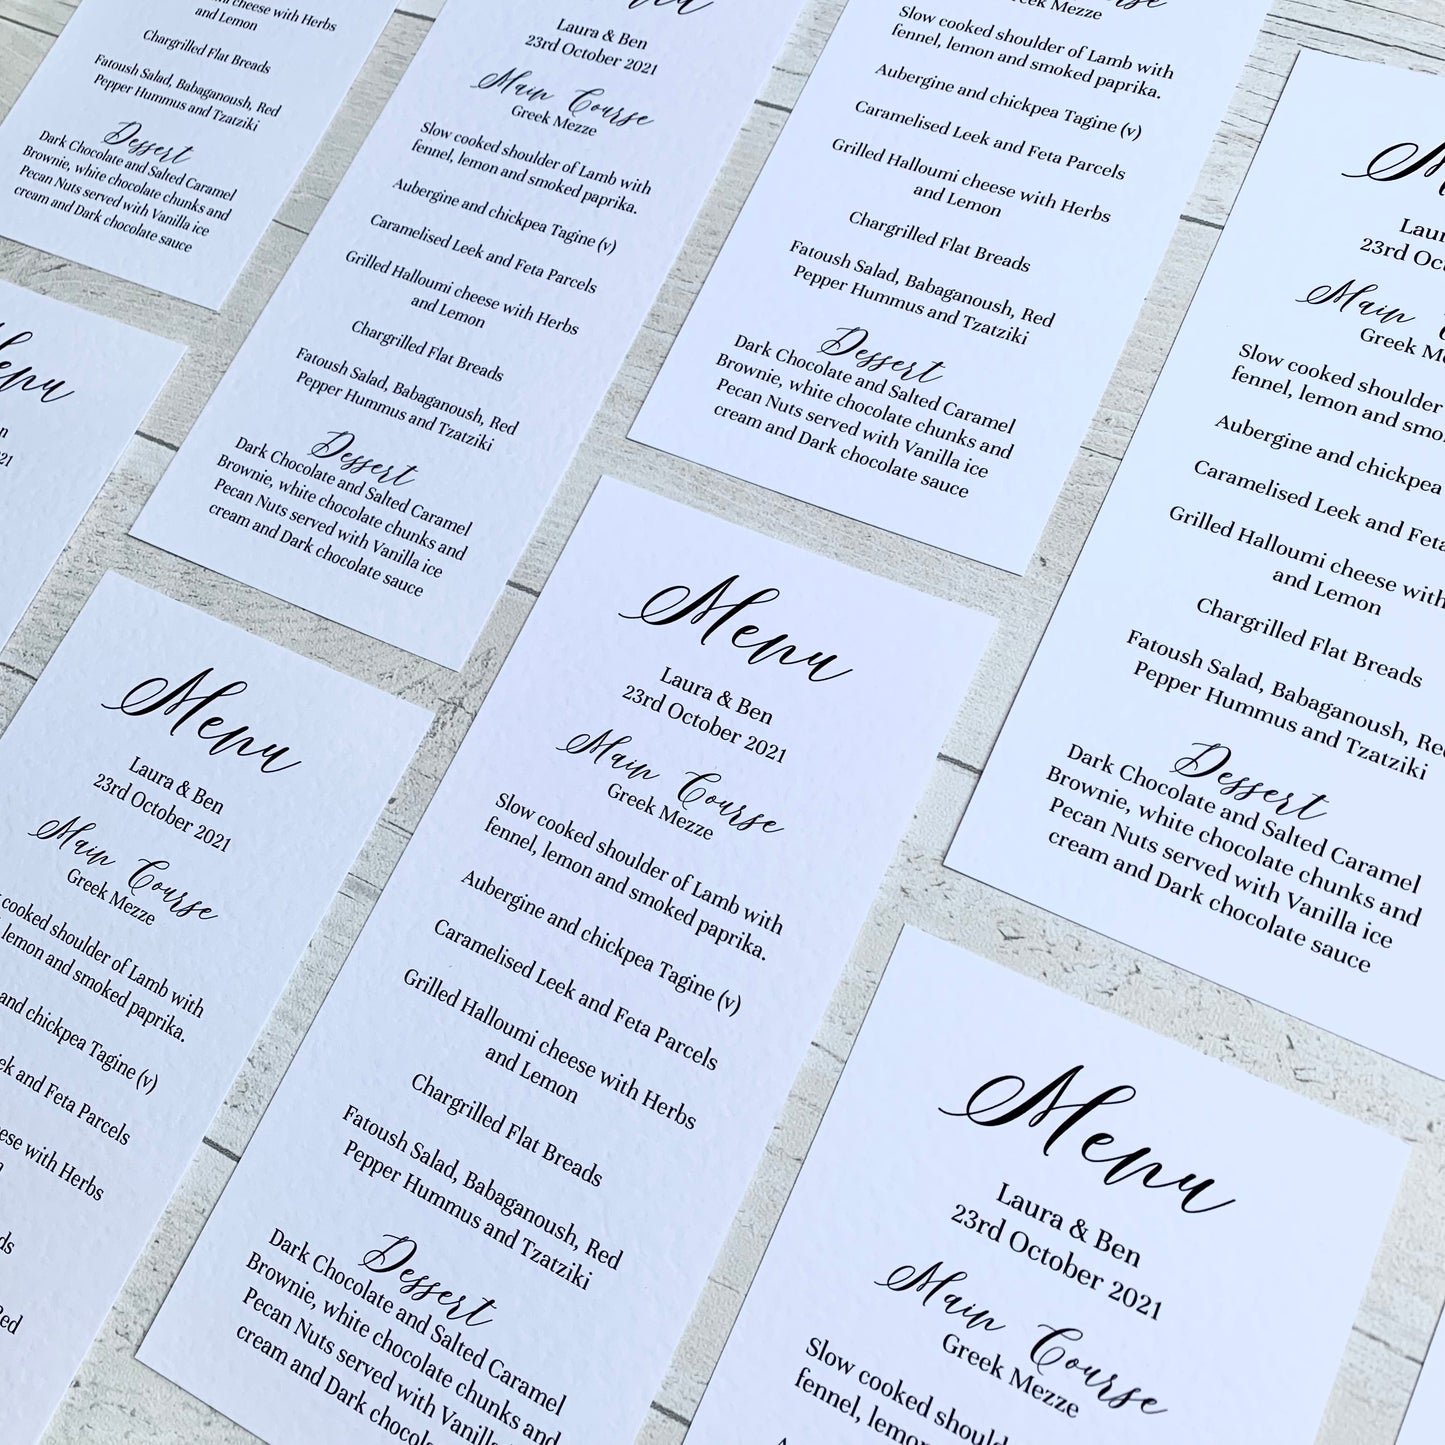 and Lemon
cheese with Herbs
Chargrilled Flat Breads
Fatoush Salad, Babaganoush, Red
Pepper Hummus and Tzatziki
Dessert
Dark Chocolate and Salted Caramel
Brownie, white chocolate chunks and
Pecan Nuts served with Vanilla ice
cream and Dark chocolate sauce
Laura & Ben
23rd October 2021
Main Course
Greek Mezze
Slow cooked shoulder of Lamb with
fennel, lemon and smoked paprika.
Aubergine and chickpea Tagine (v)
Caramelised Leek and Feta Parcels
Grilled Halloumi cheese with Herbs
and Lemon
Chargrilled Flat Breads
Fatoush Salad, Babaganoush, Red
Pepper Hummus and Tzatziki
Dessert
Dark Chocolate and Salted Caramel
Brownie, white chocolate chunks and
Pecan Nuts served with Vanilla ice
cream and Dark chocolate sauce
Greek Mezze
Slow cooked shoulder of Lamb with
fennel, lemon and smoked paprika.
Aubergine and chickpea Tagine (v)
Caramelised Leek and Feta Parcels
Grilled Halloumi cheese with Herbs
and Lemon
Chargrilled Flat Breads
Fatoush Salad, Babaganoush, Red
Pepper Hummus and Tzatziki
Dessert
Dark Chocolate and Salted Caramel
Brownie, white chocolate chunks and
Pecan Nuts served with Vanilla ice
cream and Dark chocolate sauce
23rd
Main
Greek
Slow cooked shoulder
fennel, lemon and
Aubergine and chickpea
Caramelised Leek and Feta
Grilled Halloumi cheese with
and Lemon
Chargrilled Flat Breads
Fatoush Salad, Babaganoush,
Pepper Hummus and Tzatziki
Dessert
Dark Chocolate and Salted Caramel
Brownie, white chocolate chunks and
Pecan Nuts served with Vanilla ice
cream and Dark chocolate sauce
Menu
Laura & Ben
23rd October 2021
Main Course
Greek Mezze
cooked shoulder of Lamb with
lemon and smoked paprika.
and chickpea Tagine (v)
and Feta Parcels
with Herbs
Menu
Laura & Ben
23rd October 2021
Main Course
Greek Mezze
Slow cooked shoulder of Lamb with
fennel, lemon and smoked paprika.
Aubergine and chickpea Tagine (v)
Caramelised Leek and Feta Parcels
Grilled Halloumi cheese with Herbs
and Lemon
Chargrilled Flat Breads
Fatoush Salad, Babaganoush, Red
Pepper Hummus and Tzatziki
Dessert
Dark Chocolate and Salted Caramel
Brownie, white chocolate chunks and
Pecan Nuts served with Vanilla
cream and Dark
Menu
Laura & Ben
23rd October 2021
Main Course
Greek Mezze
Slow cooked
fennel,